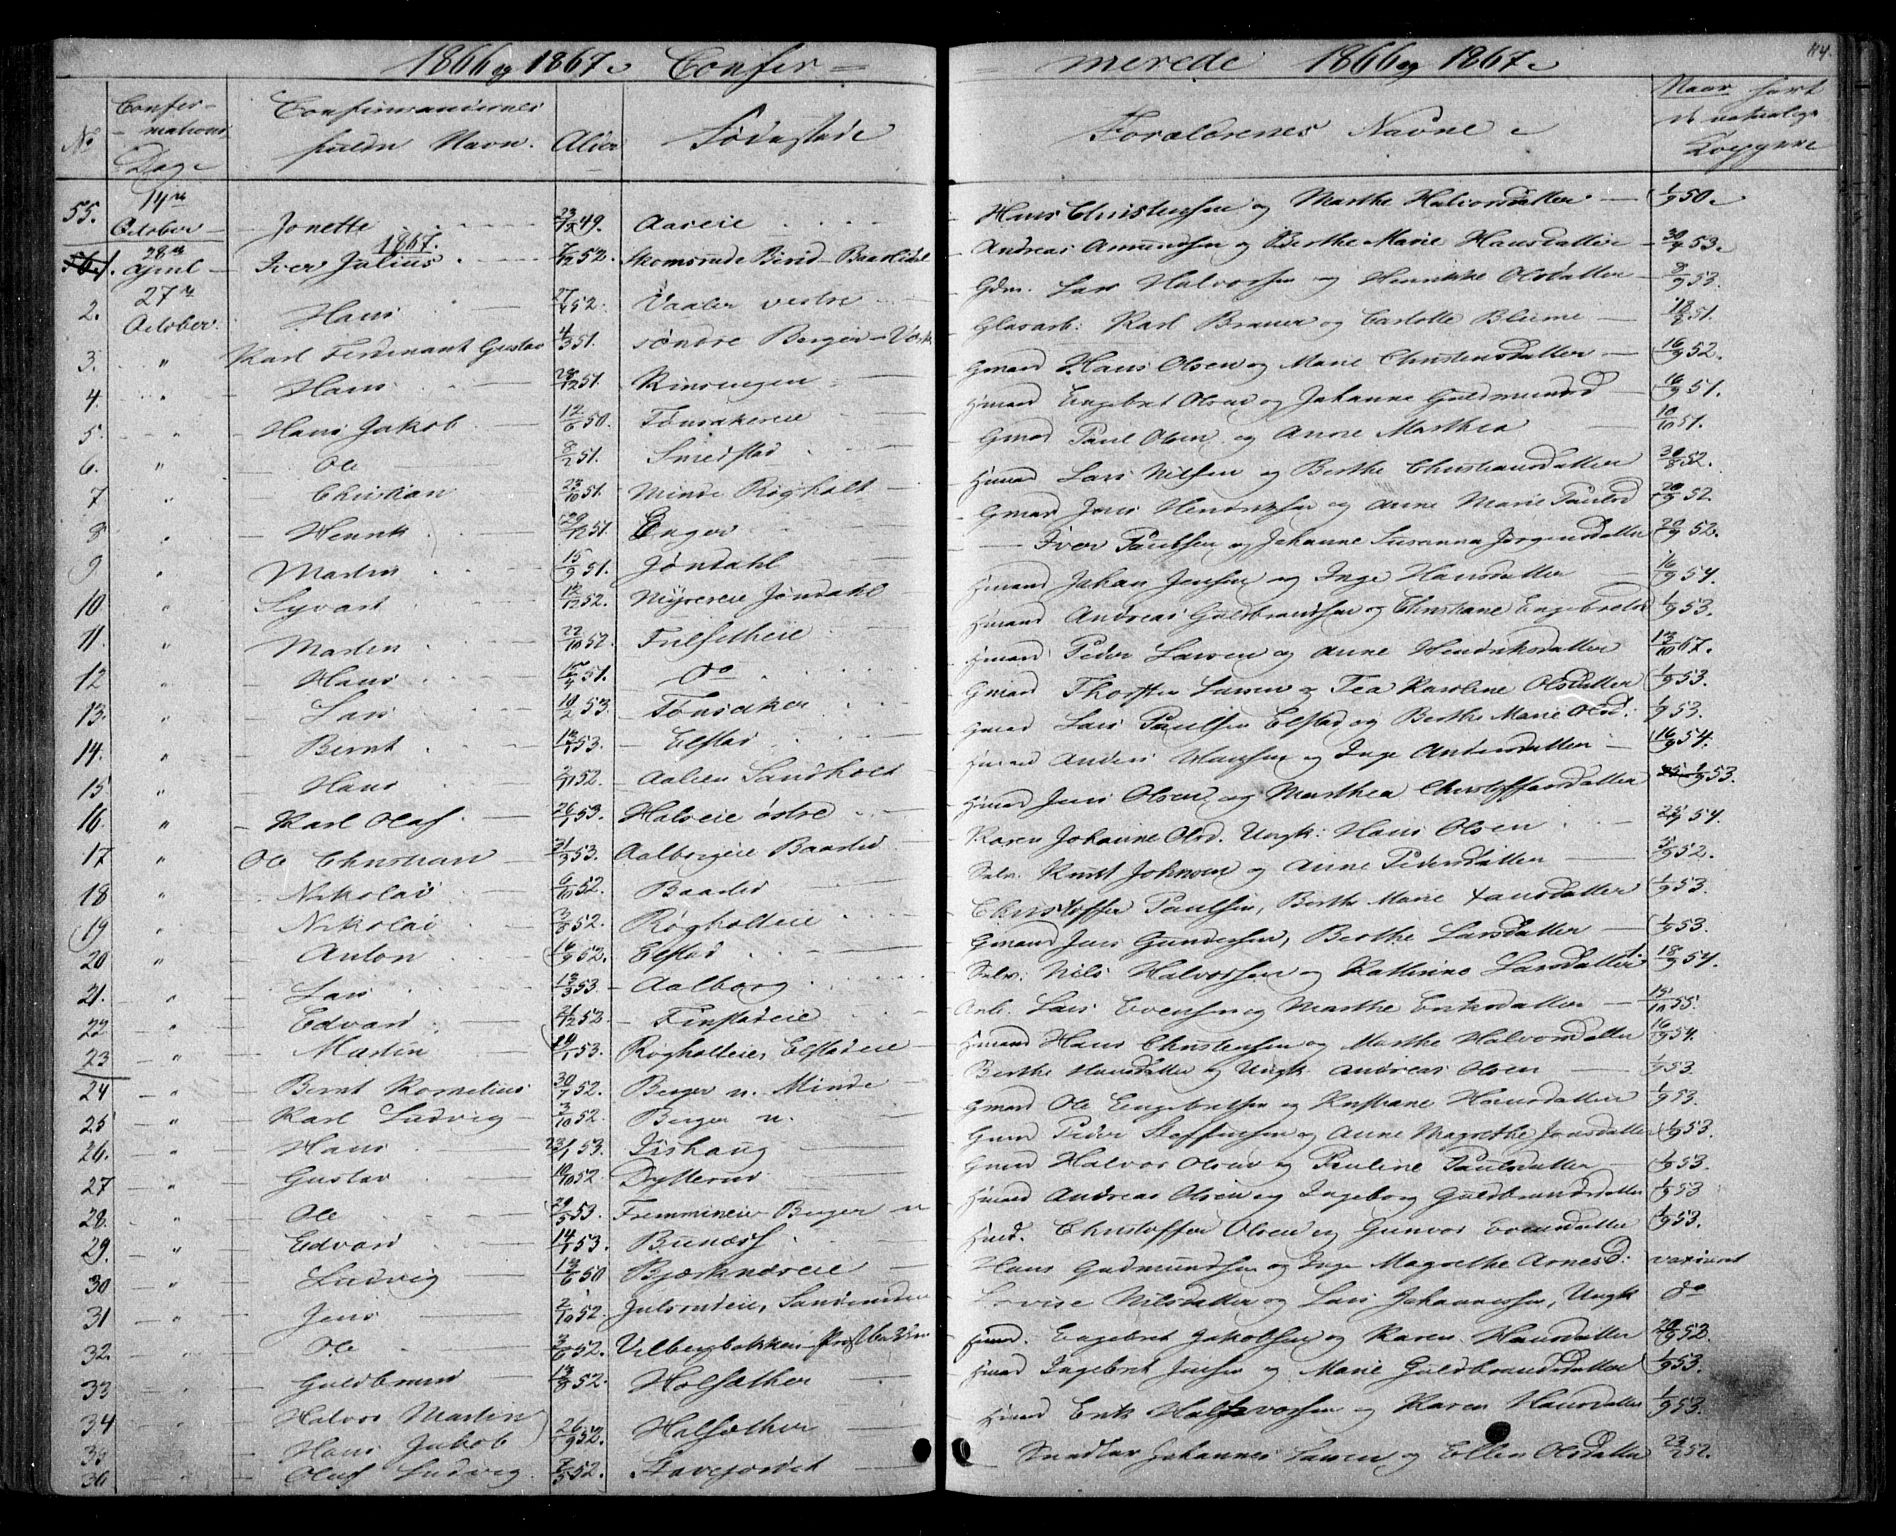 1866 og 1867. Confir= =merede 1866 og 1867. 114.
No Confirmations Dage Confirmandernes fulde Navn. Alder Fødested Forældrenes Navne Naar havt de naturlige Kopper
55. 14de October Jonette 49. Aaseie Hans Christensen og Marthe Halvorsdatter 1/9 50.
1867.
1. 28de April Iver Julius 52. Skomsrude Birid Baastad Andreas Amundsen og Berthe Marie Hansdatter 30/9 53.
2. 27de October Hans 52. Vaaler vestre Gdm. Lars Halvorsen og Henrikke Olsdatter 53.
3. " Karl Ferdinant Gustav 4/3 51. søndre Berger Glasarb: Karl Brauer og Carlotte Blume 51.
4. " Hans 28/12 51. Rinsengen Gmand Hans Olsen og Marie Christensdatter 16/9 52.
5. " Hans Jakob 12/6 50. Tønsakereie Hmand Engebret Olsen og Johanne Guldmunsd 16/9 51.
6. " Ole 8/2 51. Smedstad Gmand Paul Olsen og Anne Marthea 10/10 51.
7 " Christian 23/10 51. Minde Røgholt Hmand Lars Nilsen og Berthe Christiansdatter 30/8 52.
8 " Henrik 29/12 51. Enger Gmand Jens Hendriksen og Anne Marie Paulsd 20/9 52
9 " Martin 15/9 51. Jøndahl Iver Paulsen og Johanne Susanna Jørgensdatter 20/9 52.
10 " Syvart 12/12 52. Myrereie Jøndahl Hmand Johan Jensen og Inge Hansdatter 16/9 54.
11. " Martin 22/10 52. Trilsetheie Hmand Andreas Guldbrandsen og Christiane Engebretsd 1/9 53.
12 " Hans 51. do Hmand Peder Larsen og Anne Hendriksdatter 13/10 67.
13. " Lars 10/2 53. Tønsaker Gmand Thorsten Larsen og Tea Karoline Olsdatter 1/9 53.
14. " Bernt 13/1 53. Elstad Gmand Lars Paulsen Elstad og Berthe Marie Olsd: 1/9 53.
15 " Hans 2/11 52. Aalien Sandholt Hmand Anders Hansen og Inge Andersdatter 16/9 54.
16. " Karl Olaf 26/1 53. Halveie østre Hmand Jens Olsen og Marthea Christoffersdatter 1/9 53.
17 " Ole Christian 21/3 53. Aalborgeie Baastad Karen Johanne Olsd. Ungk: Hans Olsen 54.
18 " Nikolai 6/10 52. Baastad Selv. Knut Johnsen og Anne Pedersdatter 5/9 52.
19 " Nikolai 3/8 52. Røgholteie Christoffer Paulsen, Berthe Marie Hansdatter 1/9 53.
20 Anton 16/9 52. Elstad Gmand Jens Gundersen, Berthe Larsdatter 1/9 53.
21. " Lars 13/3 53. Aalborg Selv: Nils Halvorsen og Kathrine Larsdatter 18/9 54.
22 " Edvard 21/12 52. Finstadeie Arb. Lars Evensen og Marthe Eriksdatter 55.
23 " Martin 53. Røgholteier Elstadeie Hmand Hans Christensen og Marthe Halvorsdatter 16/9 54.
24 " Bernt Kornelius 30/7 52. Berger n. Minde Berthe Hansdatter og Ungk. Andreas Olsen 1/9 53.
25 " Karl Ludvig 3/10 52. Berger n Gmand Ole Engebretsen og Kristiane Hansdatter 1/9 53.
26. " Hans 23/1 53. Dishaug Gmd Peder Steffensen og Anne Magrethe Jonsdatter 1/9 53.
27 " Gustav 10/10 52. Dytterud Gmd Halvor Olsen og Pauline Paulsdatter 1/9 53.
28. " Ole 53. Fremmineie Berger n Hmand Andreas Olsen og Ingeborg Guldbrandsdatter 1/9 53
29. " Edvard 14/1 53. Bunæss Hmd. Christoffer Olsen og Gunvor Evensdatter 1/9 53.
30 " Ludvig 13/6 50 Bjerknæseie Hans Gudmundsen og Inge Magrethe Arnesd: vaxineret
31 " Jens 2/10 52. Julsrudeie, Lovise Nilsdatter og Lars Johannessen, Ungk do
32. " Ole 52. Vilbergbakken Hmd. Engebret Jakobsen og Karen Hansdatter 20/9 52.
33 " Guldbrand 13/8 52. Holsæther Hmand Ingebret Jensen og Marie Guldbrandsdatter 1/9 53.
34 " Halvor Martin
35 " Hans Jakob 26/9 52. Holsæther Hmand Erik Halvorsen og Karen Hansdatter 1/9 53.
36 " Olaf Ludvig 7/5 52. Stavejordet Snedker Johannes Larsen og Ellen Olsdatter 52.